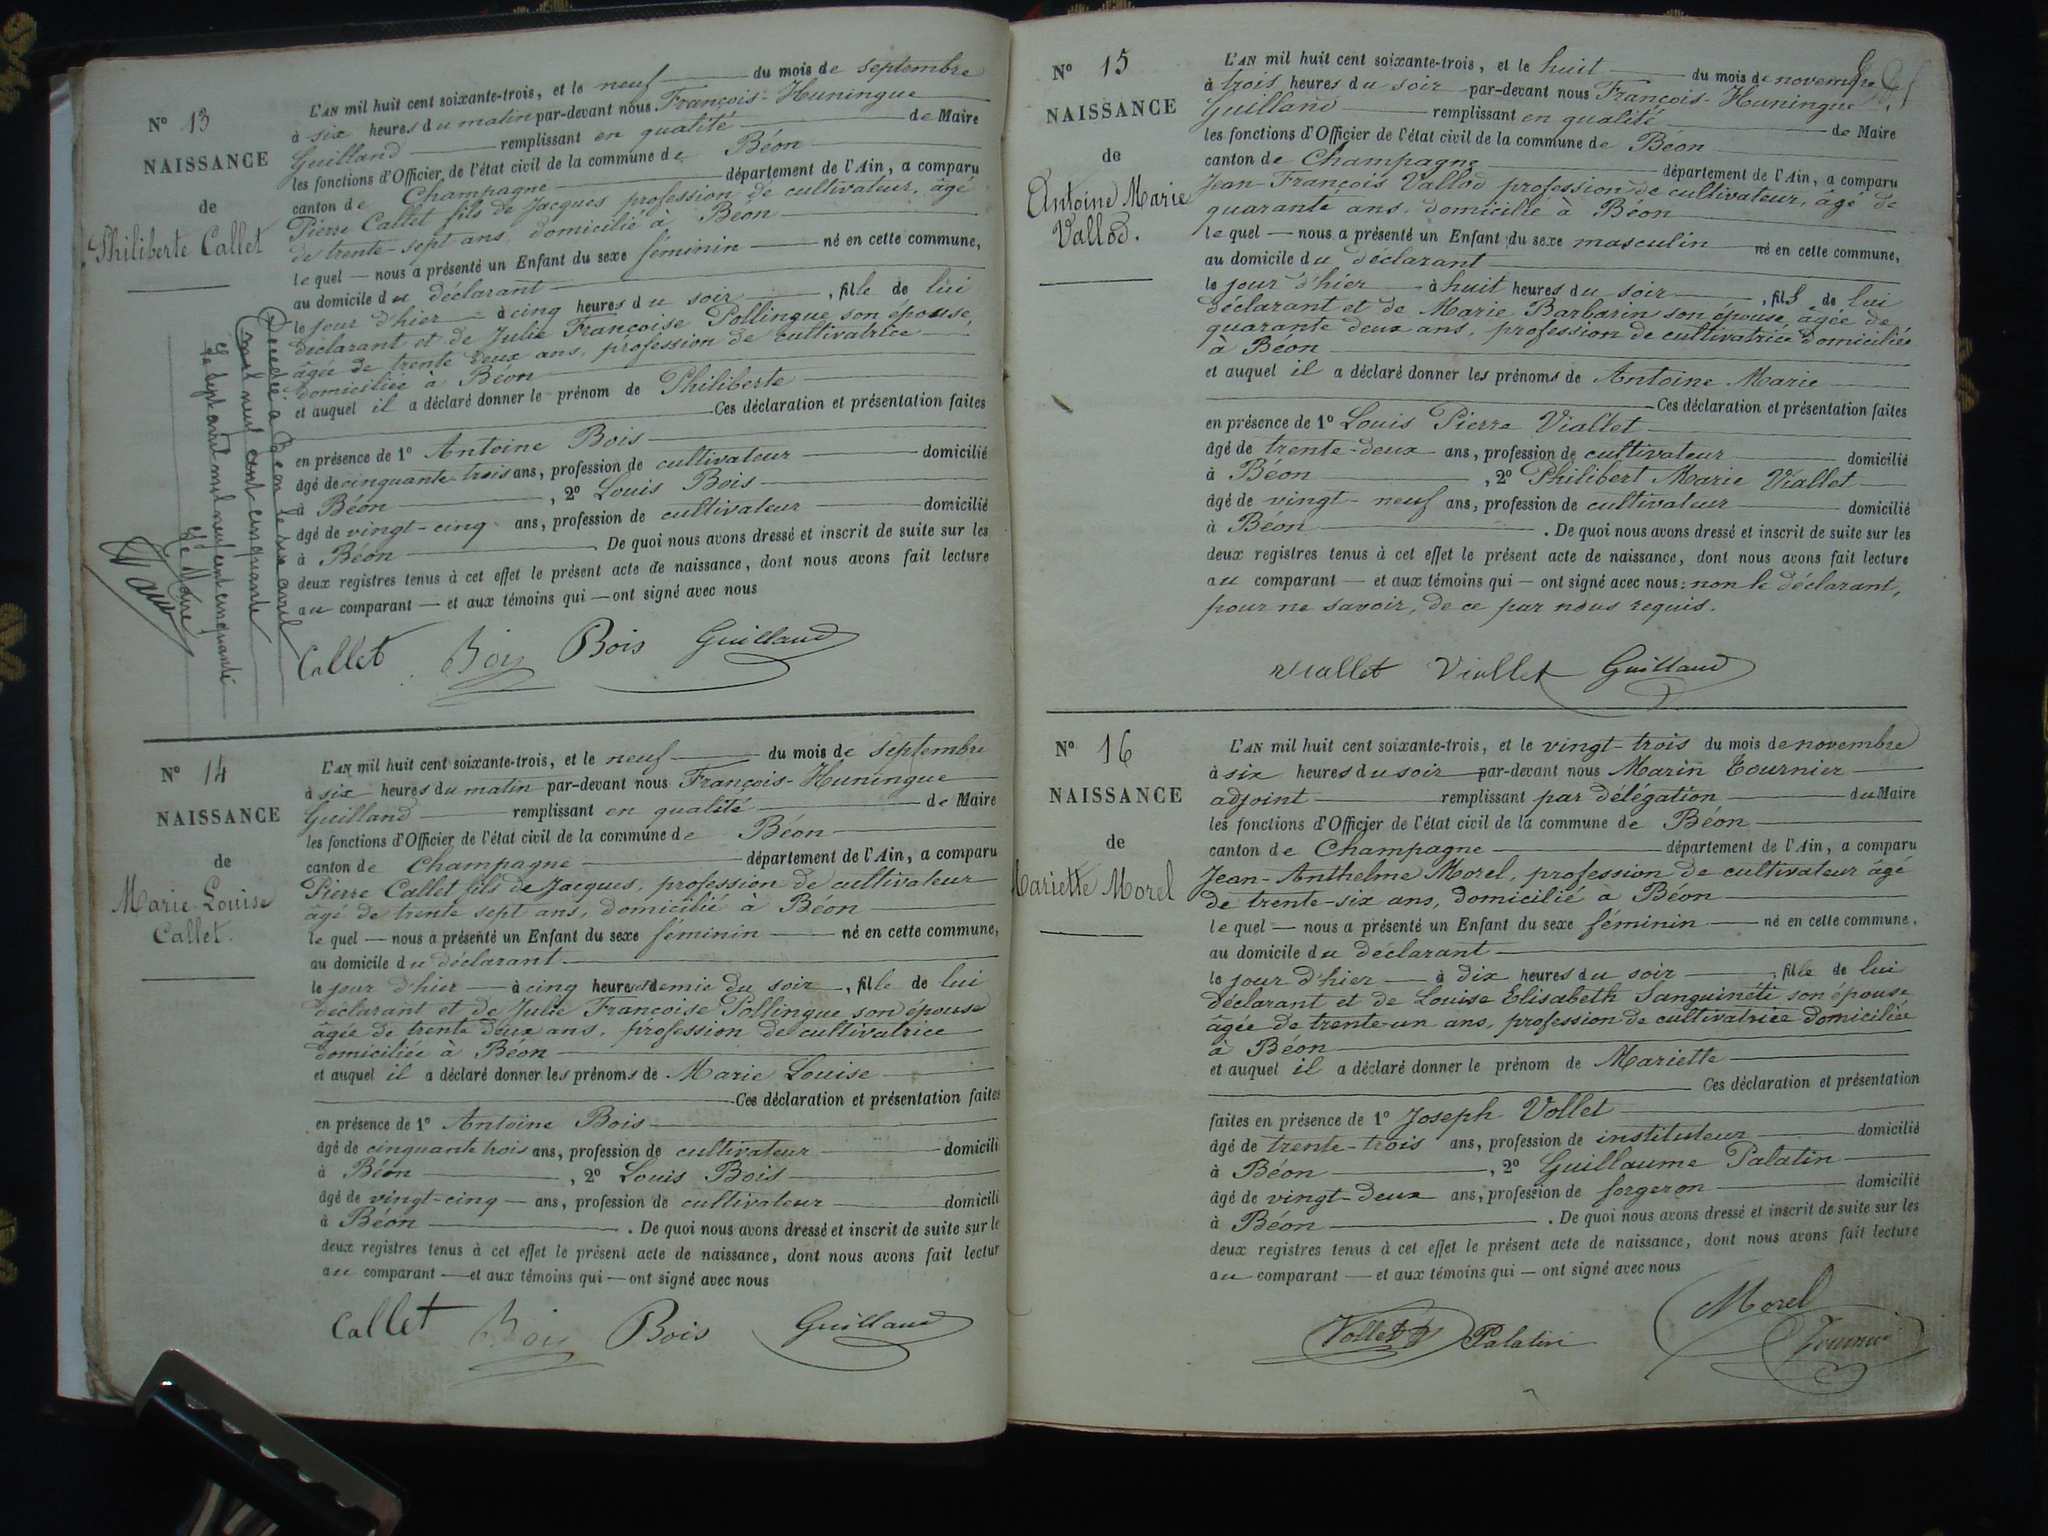 N° 13
NAISSANCE
de
Philiberte Callet
L'AN mil huit cent soixante-trois, et le neuf du mois de septembre
à six heures du matin par-devant nous François-Huningue
Guilland remplissant en qualité de Maire
les fonctions d'Officier de l'état civil de la commune de Béon
canton de Champagne département de l'Ain, a comparu
Pierre Callet fils de Jacques profession de cultivateur, âgé
de trente-sept ans domicilié à Béon
le quel — nous a présenté un Enfant du sexe féminin né en cette commune,
au domicile du déclarant
le jour d'hier à cinq heures du soir, fille de lui
déclarant et de Julie Françoise Pollingue son épouse,
âgée de trente deux ans, profession de cultivatrice
domiciliée à Béon
et auquel il a déclaré donner le prénom de Philiberte
Ces déclaration et présentation faites
en présence de 1° Antoine Bois
âgé de cinquante-trois ans, profession de cultivateur domicilié
à Béon, 2° Louis Bois
âgé de vingt-cinq ans, profession de cultivateur domicilié
à Béon. De quoi nous avons dressé et inscrit de suite sur les
deux registres tenus à cet effet le présent acte de naissance, dont nous avons fait lecture
au comparant — et aux témoins qui — ont signé avec nous
Callet Bois Bois Guilland
Décédée à Béon le six avril
mil neuf cent cinquante
Le sept avril mil neuf cent cinquante
Le Maire
N° 14
NAISSANCE
de
Marie Louise
Callet.
L'AN mil huit cent soixante-trois, et le neuf du mois de septembre
à six heures du matin par-devant nous François-Huningue
Guilland remplissant en qualité de Maire
les fonctions d'Officier de l'état civil de la commune de Béon
canton de Champagne département de l'Ain, a comparu
Pierre Callet fils de Jacques, profession de cultivateur
âgé de trente sept ans, domicilié à Béon
le quel — nous a présenté un Enfant du sexe féminin né en cette commune,
au domicile du déclarant
le jour d'hier à cinq heures et demie du soir, fille de lui
déclarant et de Julie Françoise Pollingue son épouse
âgée de trente deux ans, profession de cultivatrice
domiciliée à Béon
et auquel il a déclaré donner les prénoms de Marie Louise
Ces déclaration et présentation faites
en présence de 1° Antoine Bois
âgé de cinquante trois ans, profession de cultivateur domicili
à Béon, 2° Louis Bois
âgé de vingt-cinq — ans, profession de cultivateur domicili
à Béon. De quoi nous avons dressé et inscrit de suite sur le
deux registres tenus à cet effet le présent acte de naissance, dont nous avons fait lectur
au comparant — et aux témoins qui — ont signé avec nous
Callet Bois Bois Guilland
N° 15
NAISSANCE
de
Antoine Marie
Vallod.
L'AN mil huit cent soixante-trois, et le huit du mois de novembre
à trois heures du soir par-devant nous François-Huningue
Guilland remplissant en qualité de Maire
les fonctions d'Officier de l'état civil de la commune de Béon
canton de Champagne département de l'Ain, a comparu
Jean-François Vallod profession de cultivateur, âgé de
quarante ans, domicilié à Béon
le quel — nous a présenté un Enfant du sexe masculin né en cette commune,
au domicile du déclarant
le jour d'hier à huit heures du soir, fils de lui
déclarant et de Marie Barbarin son épouse, âgée de
quarante deux ans, profession de cultivatrice domiciliée
à Béon
et auquel il a déclaré donner les prénoms de Antoine Marie
Ces déclaration et présentation faites
en présence de 1° Louis Pierre Viallet
âgé de trente-deux ans, profession de cultivateur domicilié
à Béon, 2° Philibert Marie Viallet
âgé de vingt-neuf ans, profession de cultivateur domicilié
à Béon. De quoi nous avons dressé et inscrit de suite sur les
deux registres tenus à cet effet le présent acte de naissance, dont nous avons fait lecture
au comparant — et aux témoins qui — ont signé avec nous: non le déclarant,
pour ne savoir, de ce par nous requis.
Viallet Viallet Guilland
N° 16
NAISSANCE
de
Mariette Morel
L'AN mil huit cent soixante-trois, et le vingt-trois du mois de novembre
à six heures du soir par-devant nous Marin Tournier
adjoint remplissant par délégation du Maire
les fonctions d'Officier de l'état civil de la commune de Béon
canton de Champagne département de l'Ain, a comparu
Jean-Anthelme Morel, profession de cultivateur âgé
de trente-six ans, domicilié à Béon
le quel — nous a présenté un Enfant du sexe féminin né en cette commune.
au domicile du déclarant
le jour d'hier à dix heures du soir, fille de lui
déclarant et de Louise Elisabeth Sanguinéti son épouse
âgée de trente-un ans, profession de cultivatrice domiciliée
à Béon
et auquel il a déclaré donner le prénom de Mariette
Ces déclaration et présentation
faites en présence de 1° Joseph Vollet
âgé de trente-trois ans, profession de instituteur domicilié
à Béon, 2° Guillaume Palatin
âgé de vingt-deux ans, profession de forgeron domicilié
à Béon. De quoi nous avons dressé et inscrit de suite sur les
deux registres tenus à cet effet le présent acte de naissance, dont nous avons fait lecture
au comparant — et aux témoins qui — ont signé avec nous
Morel
Vollet Palatin Tournier